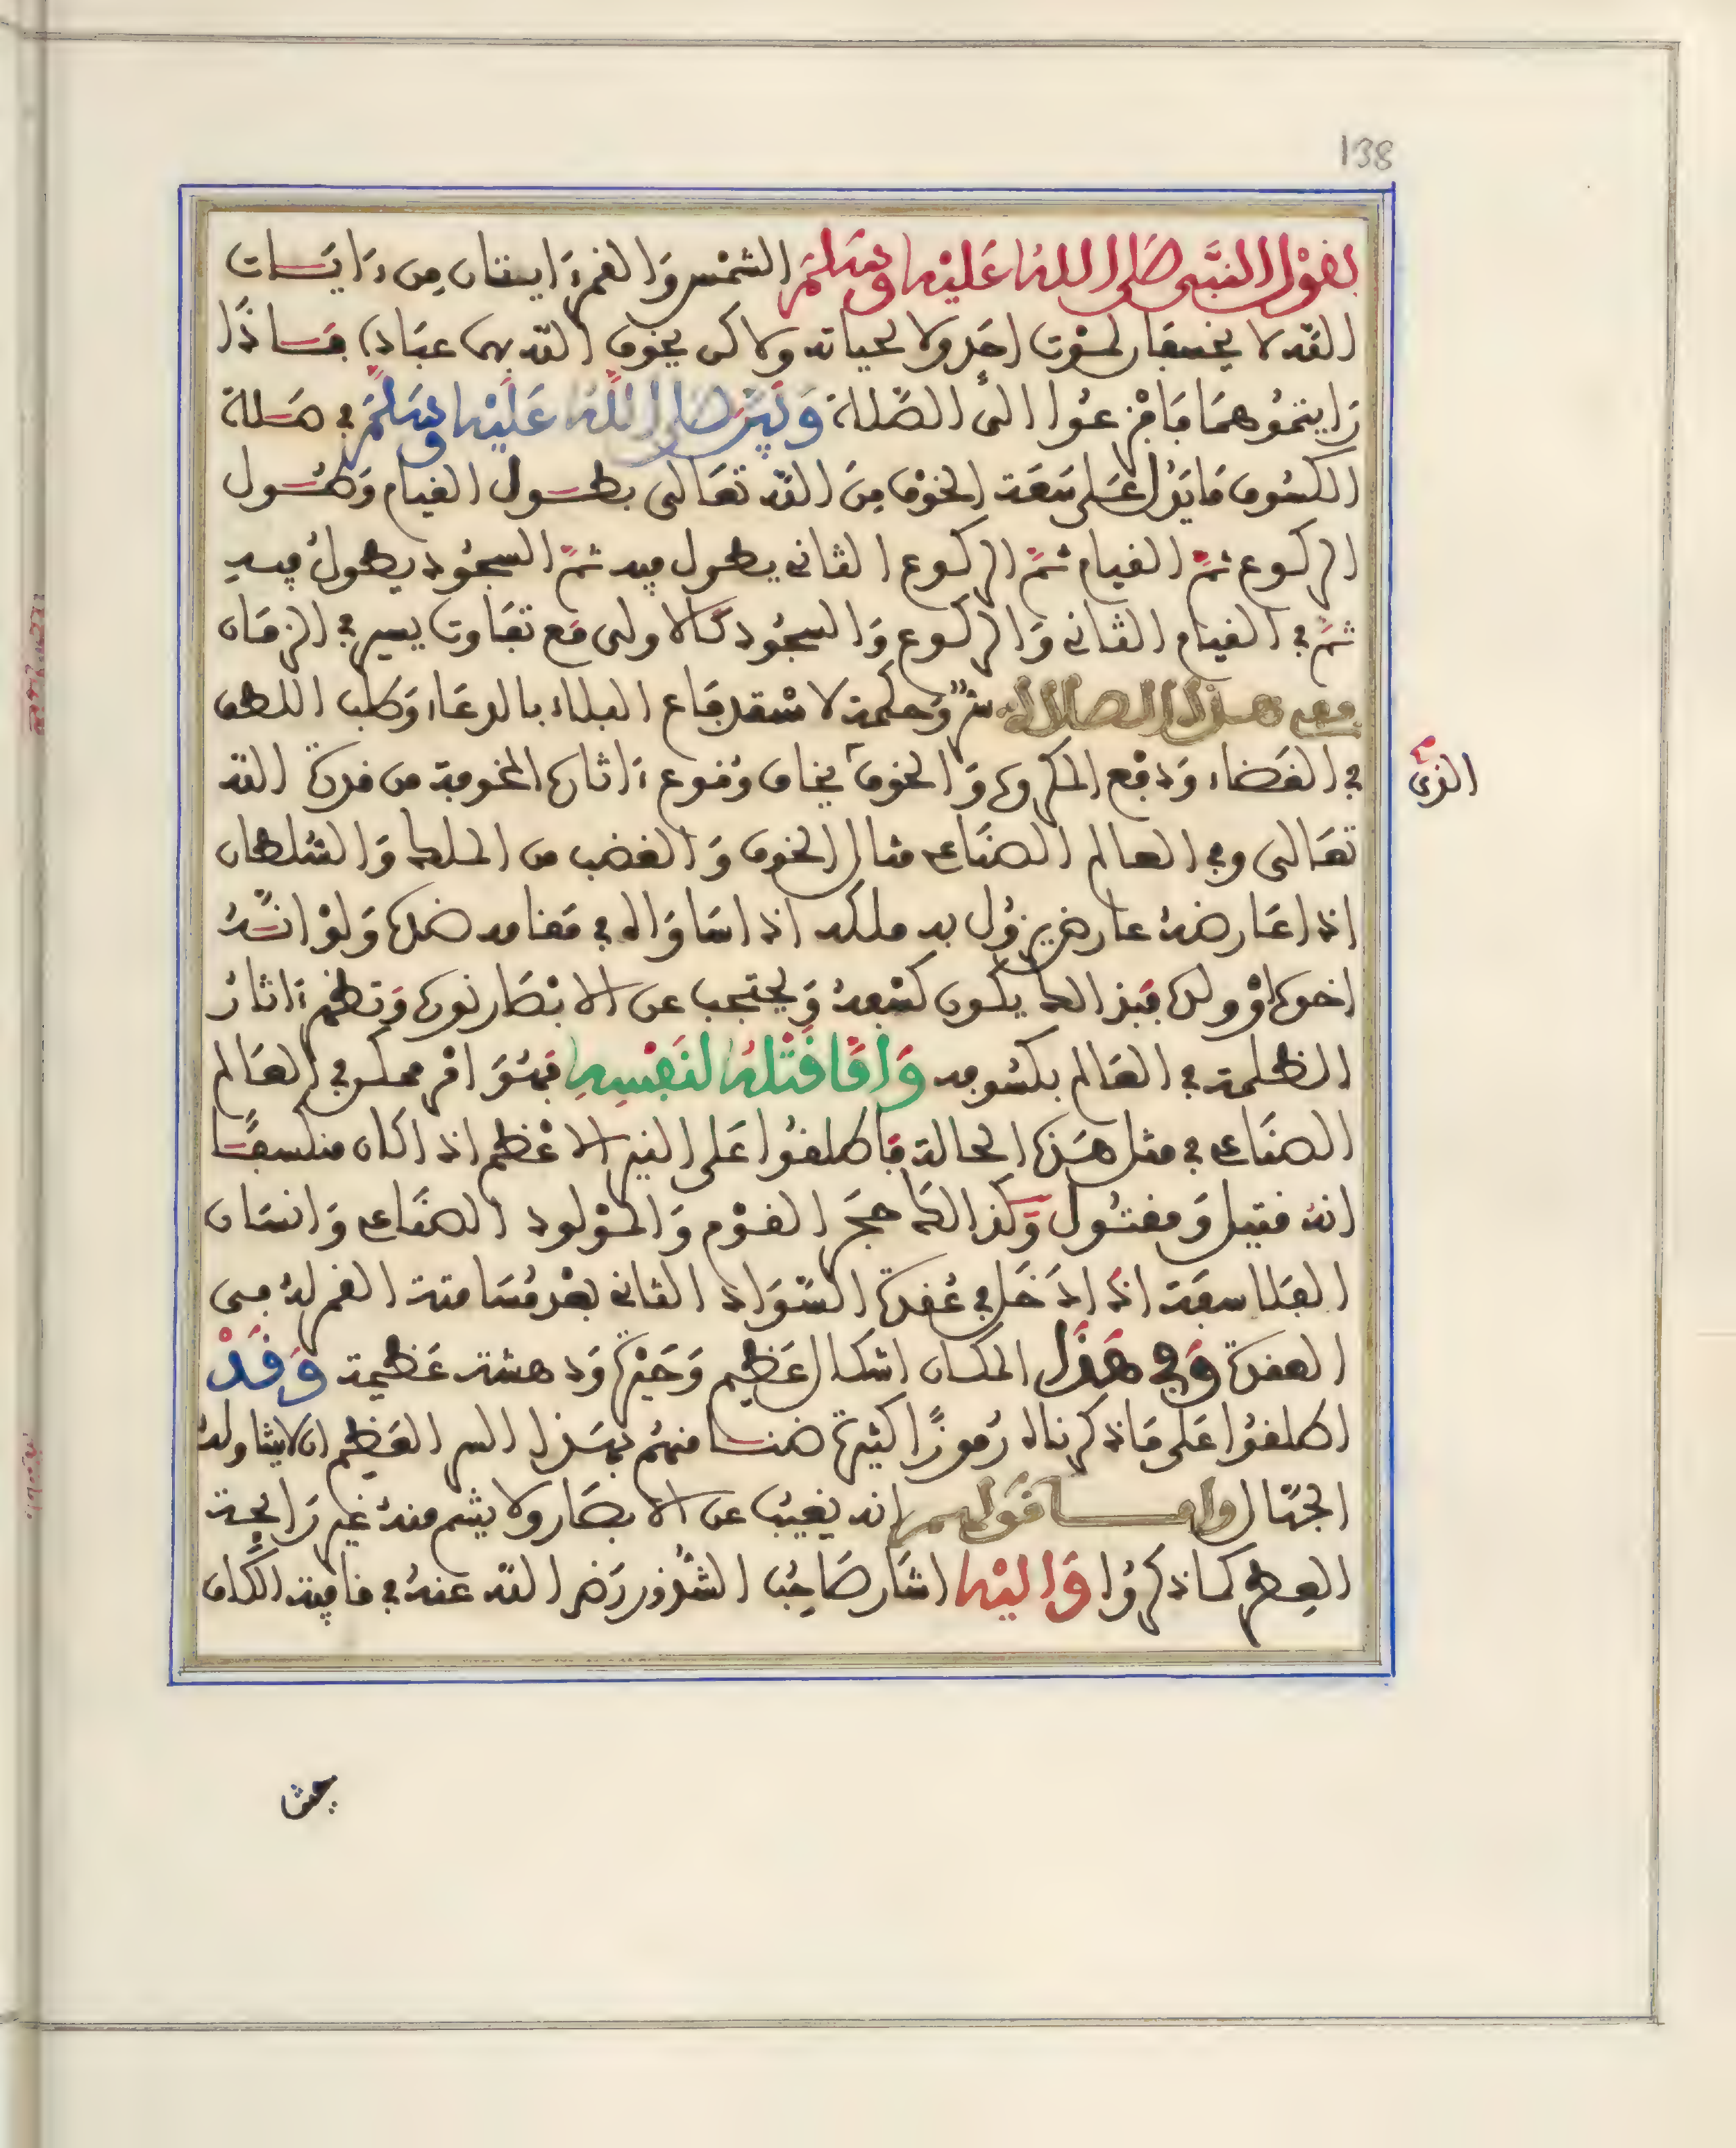 138
لقول النبي صلى الله عليه وسلم الشمس والقمر ءايتان من ءايات
الله لا يخسفان لموت احد ولا لحياته ولاكن يخوف الله بهما عباده فاذا
رايتموهما فافزعوا الى الصلاة وبين صلى الله عليه وسلم في صلاة
الكسوف ما يدل على سعة الخوف من الله تعالى بطول القيام وطول
الركوع ثم القيام ثم الركوع الثاني يطول فيه ثم السجود يطول فيه
ثم في القيام الثاني والركوع والسجود كالاولى مع تفاوت يسير في الزمان
ففي هذا الصلاة سر وحكمة لاستدفاع البلاء بالدعاء وطلب اللطف
في القضاء ودفع المكروه والخوف يخاف وقوع ءاثاره المخوفة من قدرة الله
الذي
تعالى وفي العالم الصناعي مثال الخوف والغضب من الملك والسلطان
اذا عارضه عارض يزول به ملكه اذا ساواه في مقامه ضده ولو انه
اخوه او ولده فبذالك يكون كسفه ويحتجب عن الابصار نوره وتظهر ءاثار
الظلمة في العالم بكسوفه واما قتله لنفسه فهو امر ممكن في العالم
الصناعي في مثل هذه الحالة فاطلقوا على النير الاعظم اذا كان منكسفا
انه قتيل ومقتول وكذالك حجر القوم والمولود الصناعي وانسان
الفلاسفة اذا دخل في عقدة السواد الثاني بعد مسامتة القمر له في
العقدة وفي هذا المكان اشكال عظيم وحيرة ودهشة عظيمة وقد
اطلقوا على ما ذكرناه رموزا كثيرة ضنا منهم بهذا السر العظيم ان لا يتناوله
الجهال واما قولهم انه يغيب عن الابصار ولا يشم منه غير رائحة
العطر كما ذكروا واليه اشار صاحب الشذور رضي الله عنه في قافية الكاف
حيث